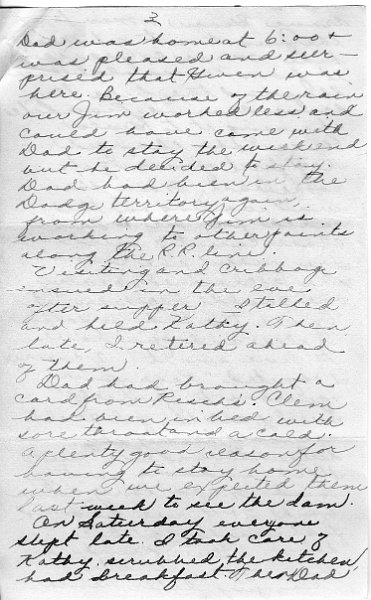 2
Dad was home at 6:00 &
was pleased and sur-
prised that Gwen was
here. Because of the rain
our Jim worked less and
could have come with
Dad to stay the weekend
but he decided to stay.
Dad had been in the
Dodge territory again,
from where Jim is
working to other points
along the R.R. line.
Visiting and cribbage
ensued in the eve
after supper. I talked
and held Kathy. Then
late, I retired ahead
of them.
Dad had brought a
card from Rischs'. Clem
had been in bed with
sore throat and a cold.
A plenty good reason for
having to stay home
when we expected them
last week to see the dam.
On Saturday everyone
slept late. I took care of
Kathy, scrubbed the kitchen,
had breakfast. Then Dad